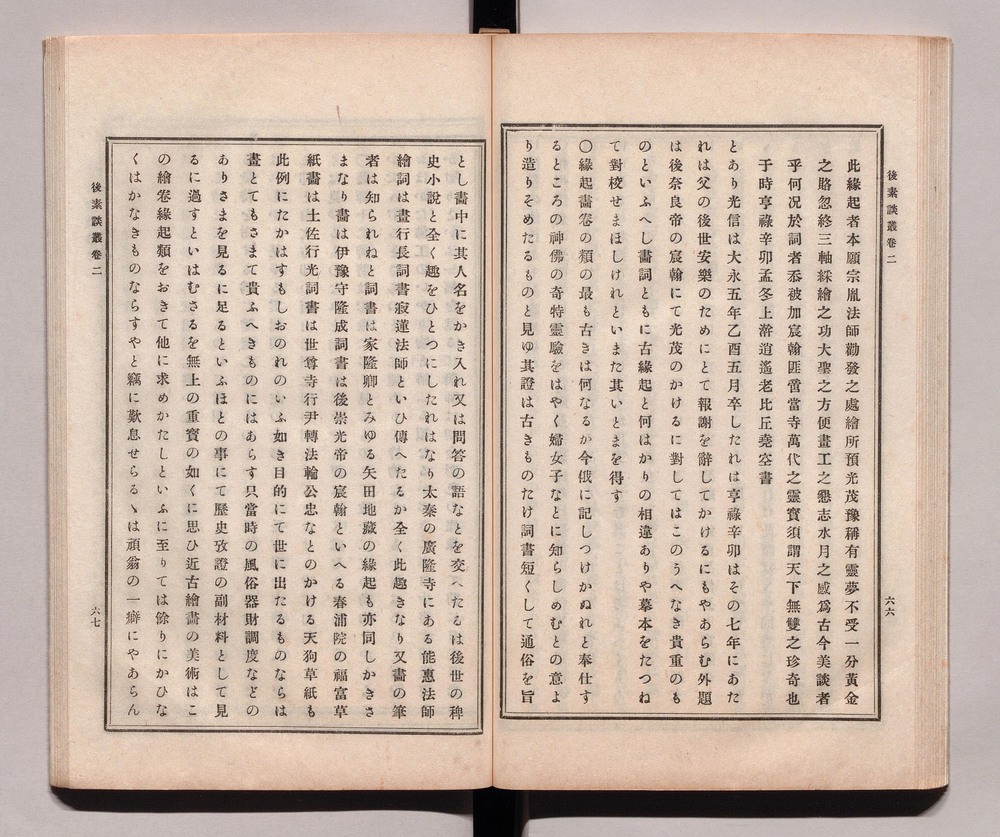 後素談叢卷二
六六
此緣起者本願宗胤法師勸發之處繪所預光茂豫稱有靈夢不受一分黃金
之賂忽終三軸綵繪之功大聖之方便畫工之懇志水月之感爲古今美談者
乎何况於詞者忝被加宸翰匪啻當寺萬代之靈寳須謂天下無雙之珍奇也
于時亨祿辛卯孟冬上澣逍遙老比丘堯空書
とあり光信は大永五年乙酉五月卒したれは亨祿辛卯はその七年にあた
れは父の後世安樂のためにとて報謝を辭してかけるにもやあらむ外題
は後奈良帝の宸翰にて光茂のかけるに對してはこのうへなき貴重のも
のといふへし畫詞ともに古緣起と何はかりの相違ありや摹本をたつね
て對校せまほしけれといまた其いとまを得す
〇緣起畵卷の類の最も古きは何なるか今俄に記しつけかぬれと奉仕す
るところの神佛の奇特靈驗をはやく婦女子なとに知らしめむとの意よ
り造りそめたるものと見ゆ其證は古きものたけ詞書短くして通俗を旨
とし畵中に其人名をかき入れ又は問答の語なとを交へたるは後世の稗
史小說と全く趣をひとつにしたれはなり太秦の廣隆寺にある能惠法師
繪詞は畫行長詞書寂蓮法師といひ傳へたるか全く此趣きなり又畵の筆
者は知られねと詞書は家隆卿とみゆる矢田地藏の緣起も亦同しかきさ
まなり畵は伊豫守隆成詞書は後崇光帝の宸翰といへる春浦院の福富草
紙畵は土佐行光詞書は世尊寺行尹轉法輪公忠なとのかける天狗草紙も
此例にたかはすもしおのれのいふ如き目的にて世に出たるものならは
畫とてもさまて貴ふへきものにはあらす只當時の風俗器財調度なとの
ありさまを見るに足るといふほとの事にて歷史攷證の副材料として見
るに過すといはむさるを無上の重寳の如くに思ひ近古繪畵の美術はこ
の繪卷緣起類をおきて他に求めかたしといふに至りては餘りにかひな
くはかなきものならすやと竊に歎息せらるゝは頑翁の一癖にやあらん
後素談叢卷二
六七